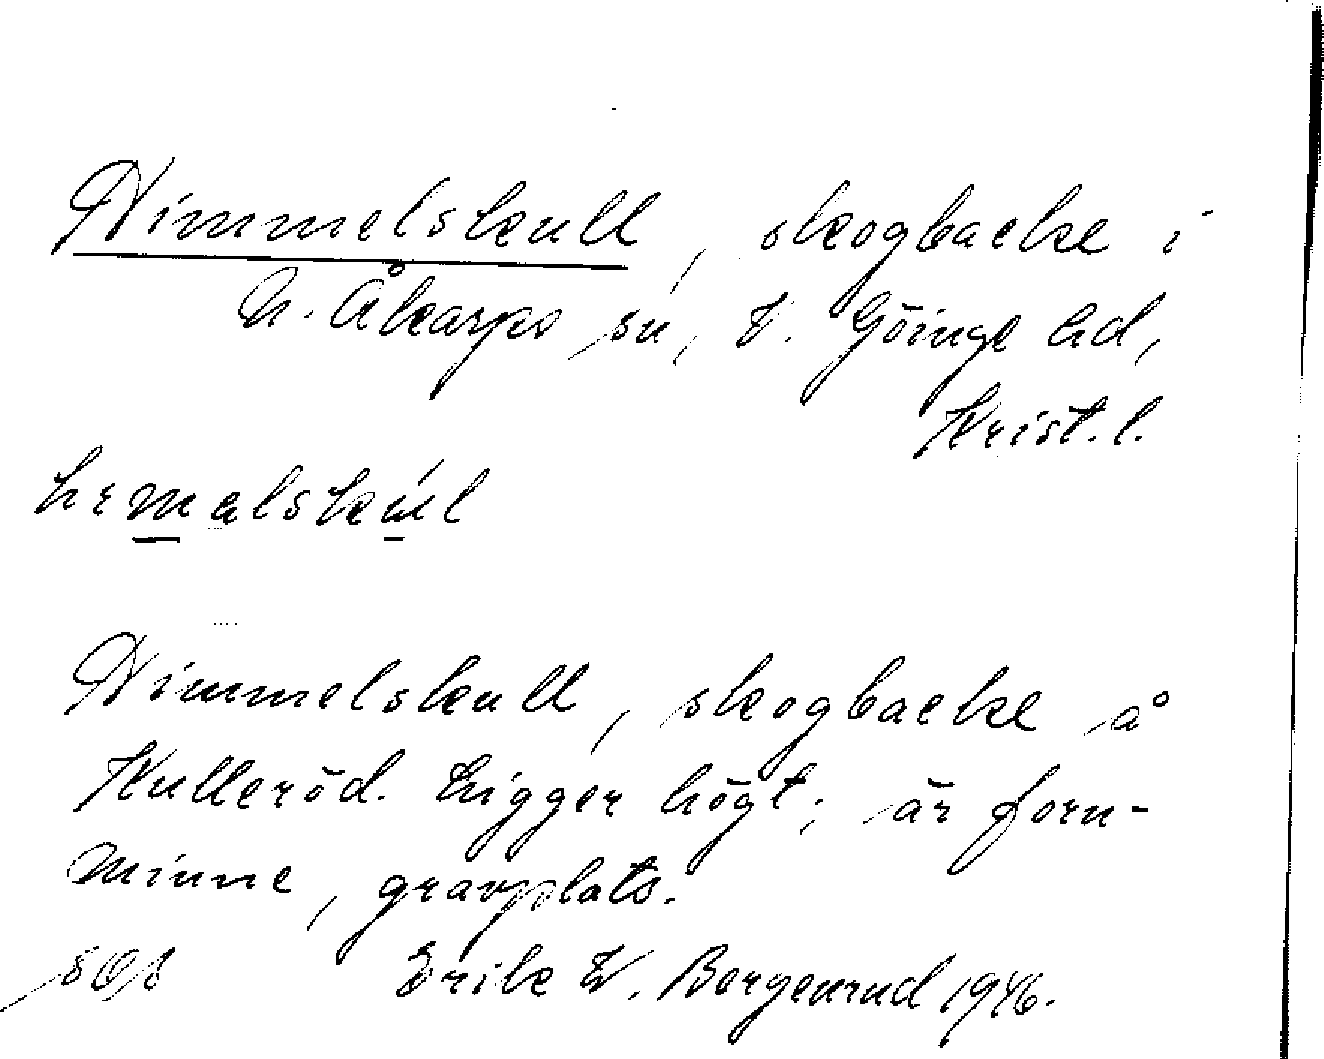 Himmelskull, skogbacke i
N. Åkarps sn, V. Göinge hd,
Krist. l.
hemalskúl
Himmelskull, skogbacke å
Kulleröd. Ligger högt; är forn-
minne, gravplats.
Erik W. Borgenrud 1946.